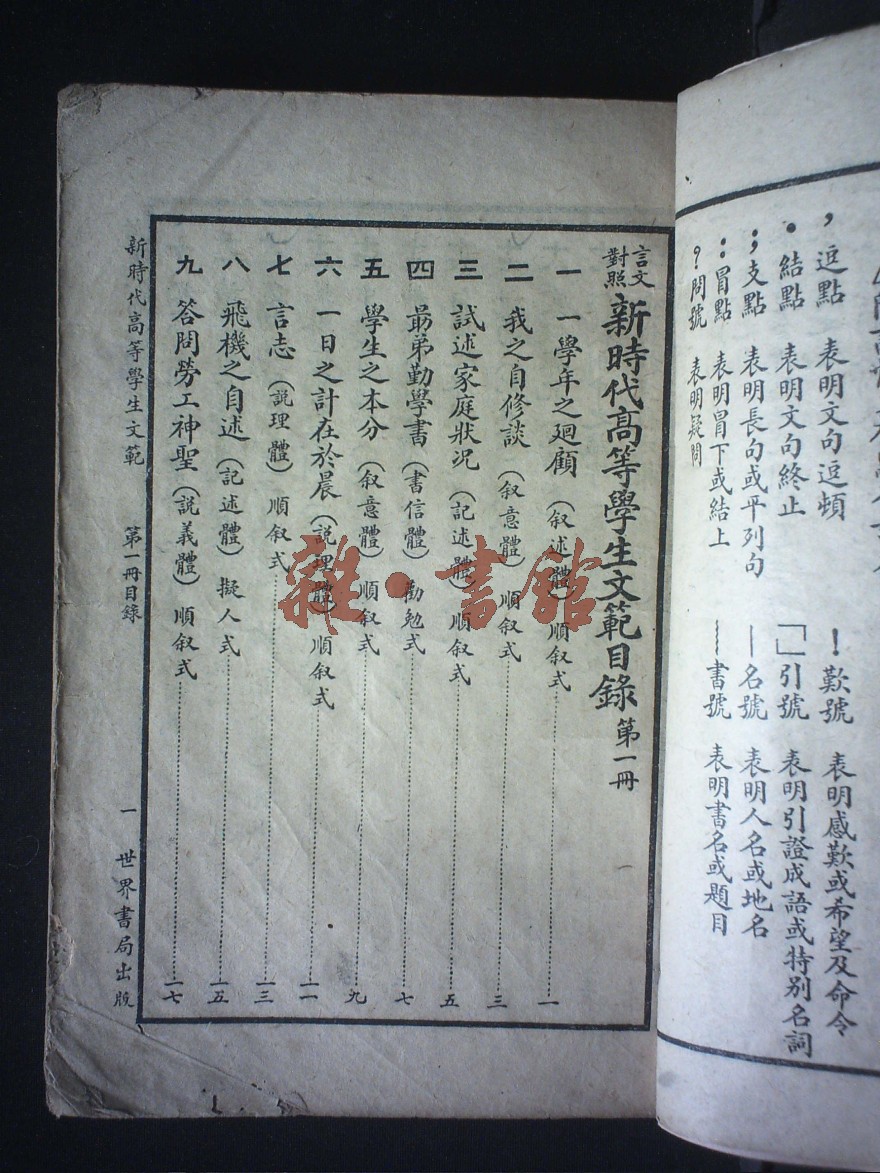 ，逗點 表明文句逗頓
！歎號 表明感歎或希望及命令
．結點 表明文句終止
「」引號 表明引證成語或特別名詞
；支點 表明長句或平列句
—名號 表明人名或地名
：冒點 表明冒下或結上
﹏書號 表明書名或題目
？問號 表明疑問
言文對照 新時代高等學生文範目錄 第一冊
一 一學年之廻顧（敘述體）順敘式 一
二 我之自修談（敘意體）順敘式 三
三 試述家庭狀況（記述體）順敘式 五
四 勗弟勤學書（書信體）勸勉式 七
五 學生之本分（敘意體）順敘式 九
六 一日之計在於晨（說理體）順敘式 一一
七 言志（說理體）順敘式 一三
八 飛機之自述（記述體）擬人式 一五
九 答問勞工神聖（說義體）順敘式 一七
新時代高等學生文範 第一冊目錄 一 世界書局出版
雜·書館